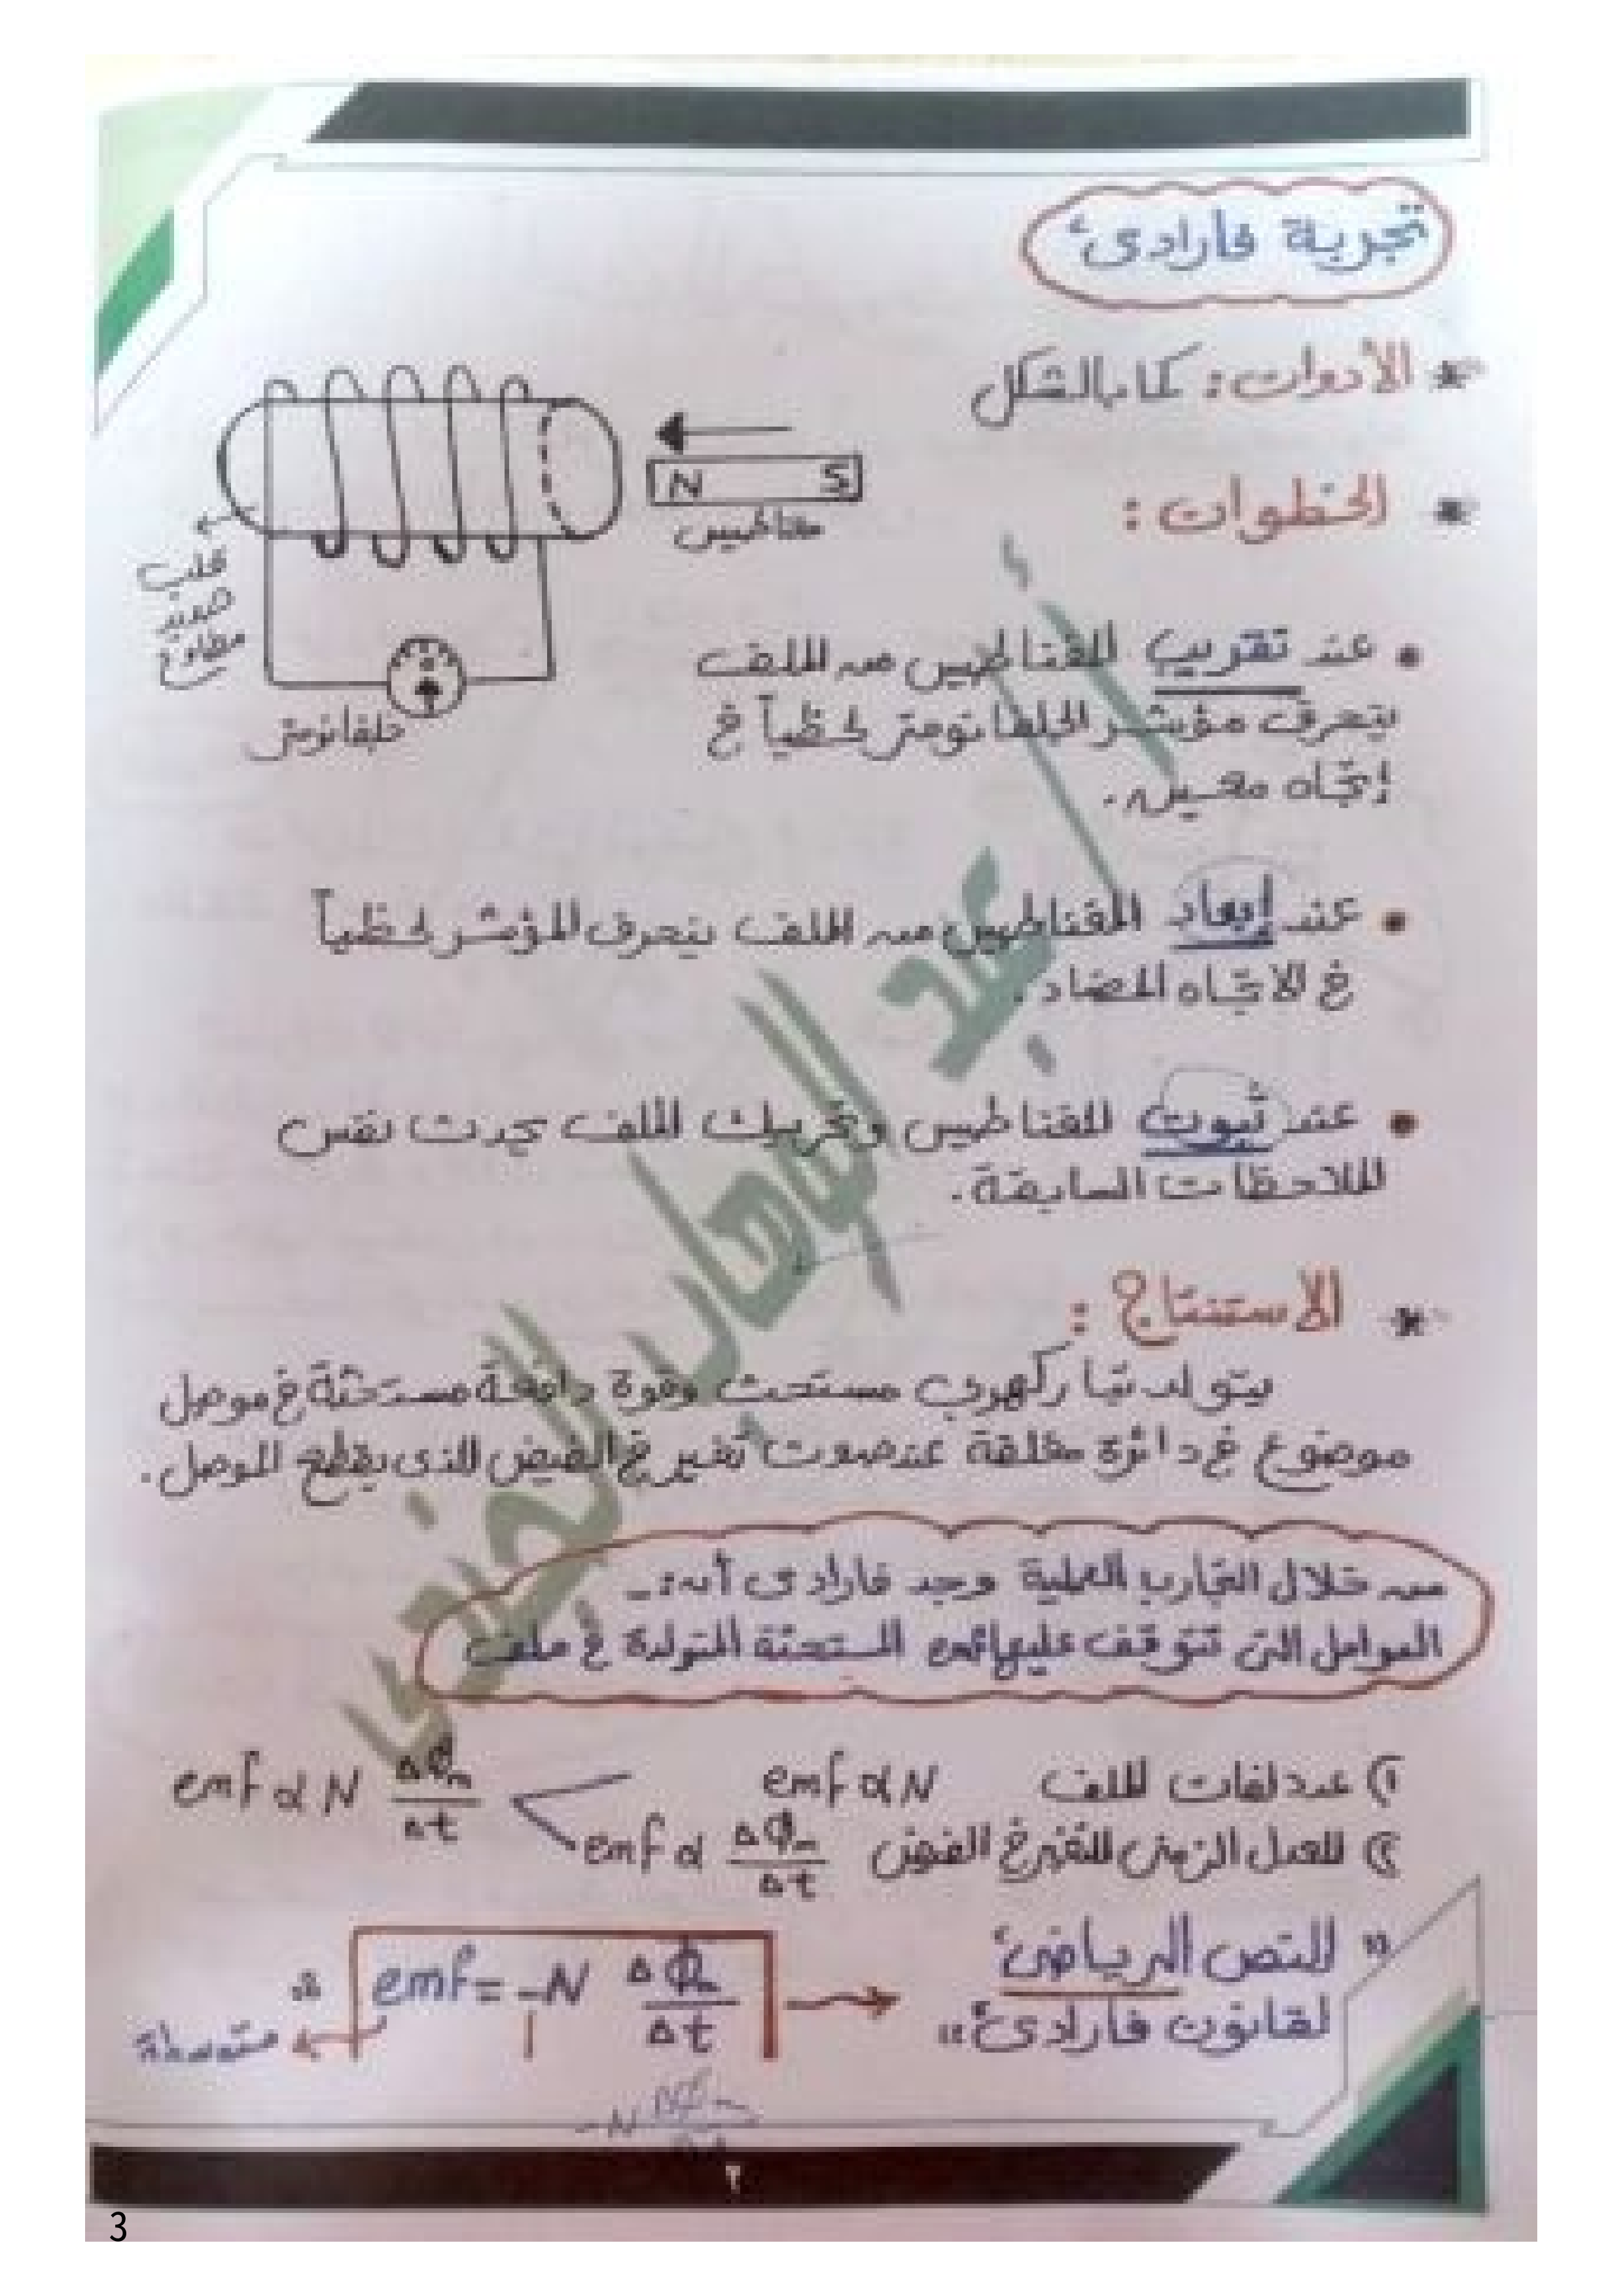 تجربة فارادى
* الأدوات: كما بالشكل
N S
مغناطيس
* الخطوات:
قلب
حديد
مطاوع
جلفانومتر
• عند تقريب المغناطيس من الملف
ينحرف مؤشر الجلفانومتر لحظياً في
إتجاه معين.
• عند إبعاد المغناطيس من الملف ينحرف المؤشر لحظياً
في الاتجاه المضاد.
• عند ثبوت المغناطيس وتحريك الملف يحدث نفس
الملاحظات السابقة.
* الاستنتاج:
يتولد تيار كهربى مستحث وقوة دافعة مستحثة في موصل
موضوع في دائرة مغلقة عند حدوث تغير في الفيض الذى يقطع الموصل.
من خلال التجارب العملية وجد فارادى أن:-
العوامل التى تتوقف عليها emf المستحثة المتولدة في ملف
١) عدد لفات الملف emf α N
emf α N ΔΦm/Δt
٢) المعدل الزمنى للتغير في الفيض emf α ΔΦm/Δt
" النص الرياضى
لقانون فارادى"
emf = -N ΔΦm/Δt
متوسطة
٢
3
أ / عبد الوهاب